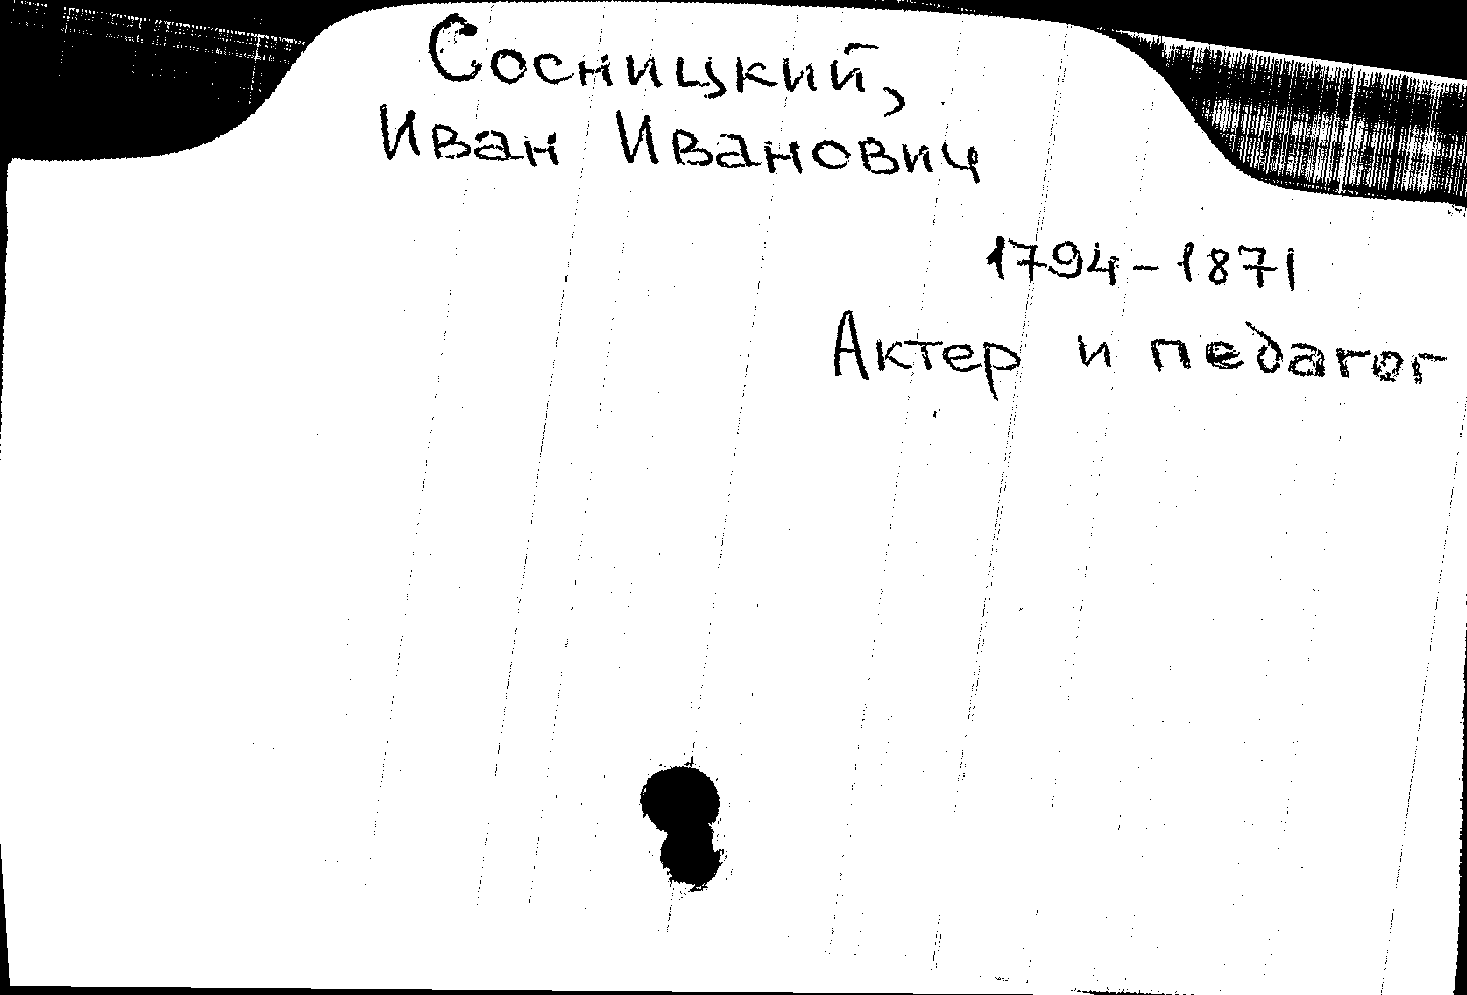 Сосницкий,
Иван Иванович
1794-1871
Актер и педагог